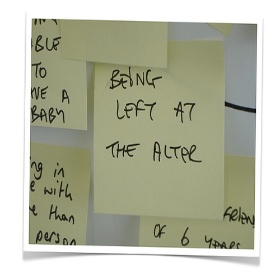 ABLE
TO
A
BABY
BEING
LEFT AT
THE ALTER
in
with
than
person
OF 6 YEARS